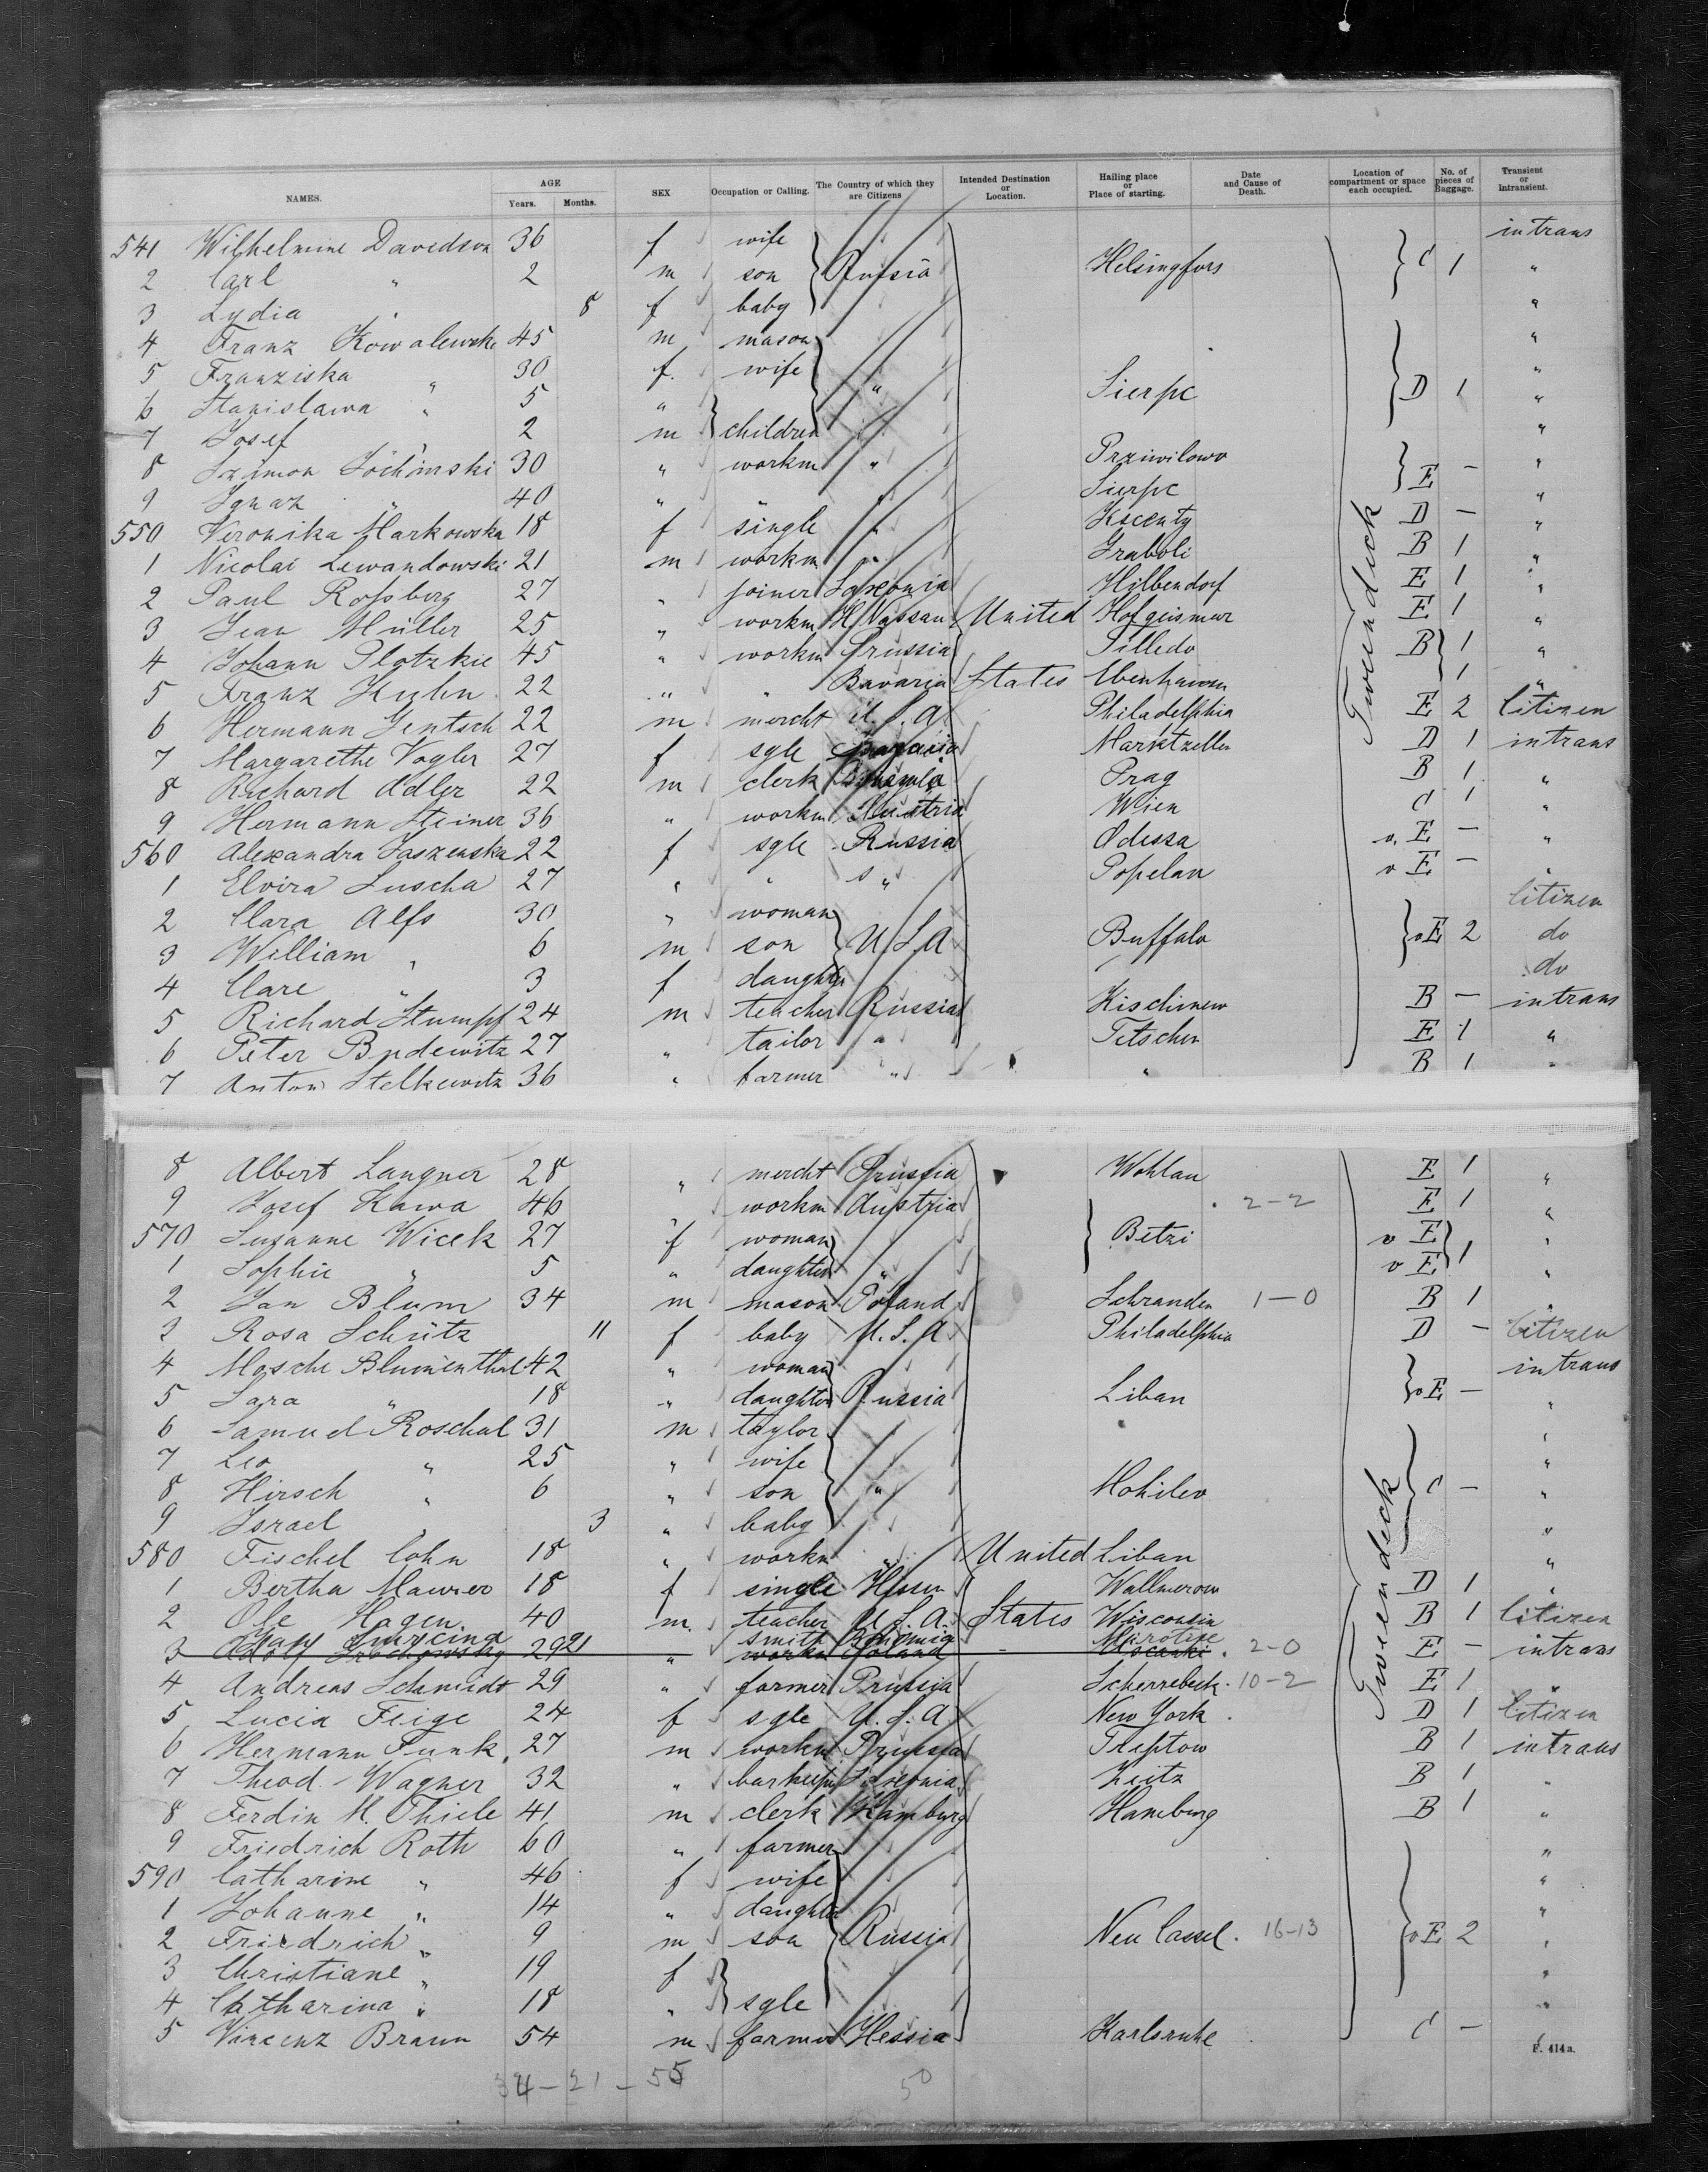 NAMES. AGE Years. Months. SEX Occupation or Calling. The Country of which they are Citizens Intended Destination or Location. Hailing place or Place of starting. Date and Cause of Death. Location of compartment or space each occupied. No. of pieces of Baggage. Transient or Intransient.
541 Wilhelmine Davidson 36 f wife intrans
2 Carl " 2 m son Russia Helsingfors C 1 "
3 Lydia " 8 f baby "
4 Franz Kowalewski 45 m mason "
5 Franziska " 30 f. wife " "
6 Stanislawa " 5 " Sierpc D 1 "
7 Josef " 2 m children "
8 Szimon 30 " workm " Prziwilowo E - "
9 Ignaz " 40 " " Sierpc "
550 Veronika Markowska 18 f single " D - "
1 Nicolai Lewandowski 21 m workm " B 1 "
2 Paul Rossberg 27 " joiner Saxonia Hilbendorf E 1 "
3 Jean Müller 25 " workm H Nassau United Hofgeismar E 1 "
4 Johann Plotzkie 45 " workm Prussia Tilledo B 1 "
5 Franz 22 " " Bavaria States 1 "
6 Hermann Jentsch 22 m mercht U.S.A. Philadelphia E 2 Citizen
7 Margarethe Vogler 27 f sgle Bavaria Marktzellen D 1 intrans
8 Richard Adler 22 m clerk Bohemia Prag B 1 "
9 Hermann Steiner 36 " workm Austria Wien C 1 "
560 Alexandra 22 f sgle Russia Odessa v. E - "
1 Elvira Luscha 27 " " " Popelan v E -
2 Clara Alfs 30 " woman Citizen
3 William " 6 m son U.S.A Buffalo v E 2 do
4 Clare " 3 f daughter do
5 Richard Stumpf 24 m teacher Russia Kischinew B - intrans
6 Peter Budewitz 27 " tailor " Tetschen E 1 "
7 Anton Stelkewitz 36 " farmer " " B 1 "
Tweendeck
8 Albert Langner 28 " mercht Prussia Wohlau E 1 "
9 Josef Kawa 46 workm Austria 2-2 E 1 "
570 Susanne Wicek 27 f woman Betzi v E "
1 Sophie " 5 " daughter " v E 1 "
2 Jan Blum 34 m mason Poland Schranden 1-0 B 1 "
3 Rosa Schütz 11 f baby U.S.A Philadelphia D - Citizen
4 Mosche Blumenthal 42 " woman intrans
5 Sara " 18 " daughter Russia Liban v E - "
6 Samuel Roschal 31 m taylor "
7 Leo " 25 " wife "
8 Hirsch " 6 " son " Mohilev C - "
9 Israel " 3 " baby "
580 Fischel Cohn 18 " workm " United Liban "
1 Bertha Maurer 18 f single Hessen Wallmerow D 1 "
2 Ole Hagen 40 m. teacher U.S.A. States Wisconsin B 1 Citizen
21 smith Bohemia Mirotize
3 Adolf 29 " workm Poland 2-0 E - intrans
4 Andreas Schmidt 29 " farmer Prussia Scherrebeck 10-2 E 1 "
5 Lucia Feige 24 f sgle U.S.A New York D 1 Citizen
6 Hermann Punk 27 m workm Prussia Treptow B 1 intrans
7 Theod. Wagner 32 " barkeeper Saxonia Zeitz B 1 "
8 Ferdin M. Thiele 41 m clerk Hamburg Hamburg B 1 "
9 Friedrich Roth 60 " farmer "
590 Catharine " 46 f wife "
1 Johanne " 14 " daughter "
2 Friedrich " 9 m son Russia Neu Cassel. 16-13 v E 2 "
3 Christiane " 19 f "
4 Catharina " 18 " sgle "
5 Vincenz Braun 54 m farmer Hessia Karlsruhe C -
Tweendeck
F. 414a.
34-21-55 50